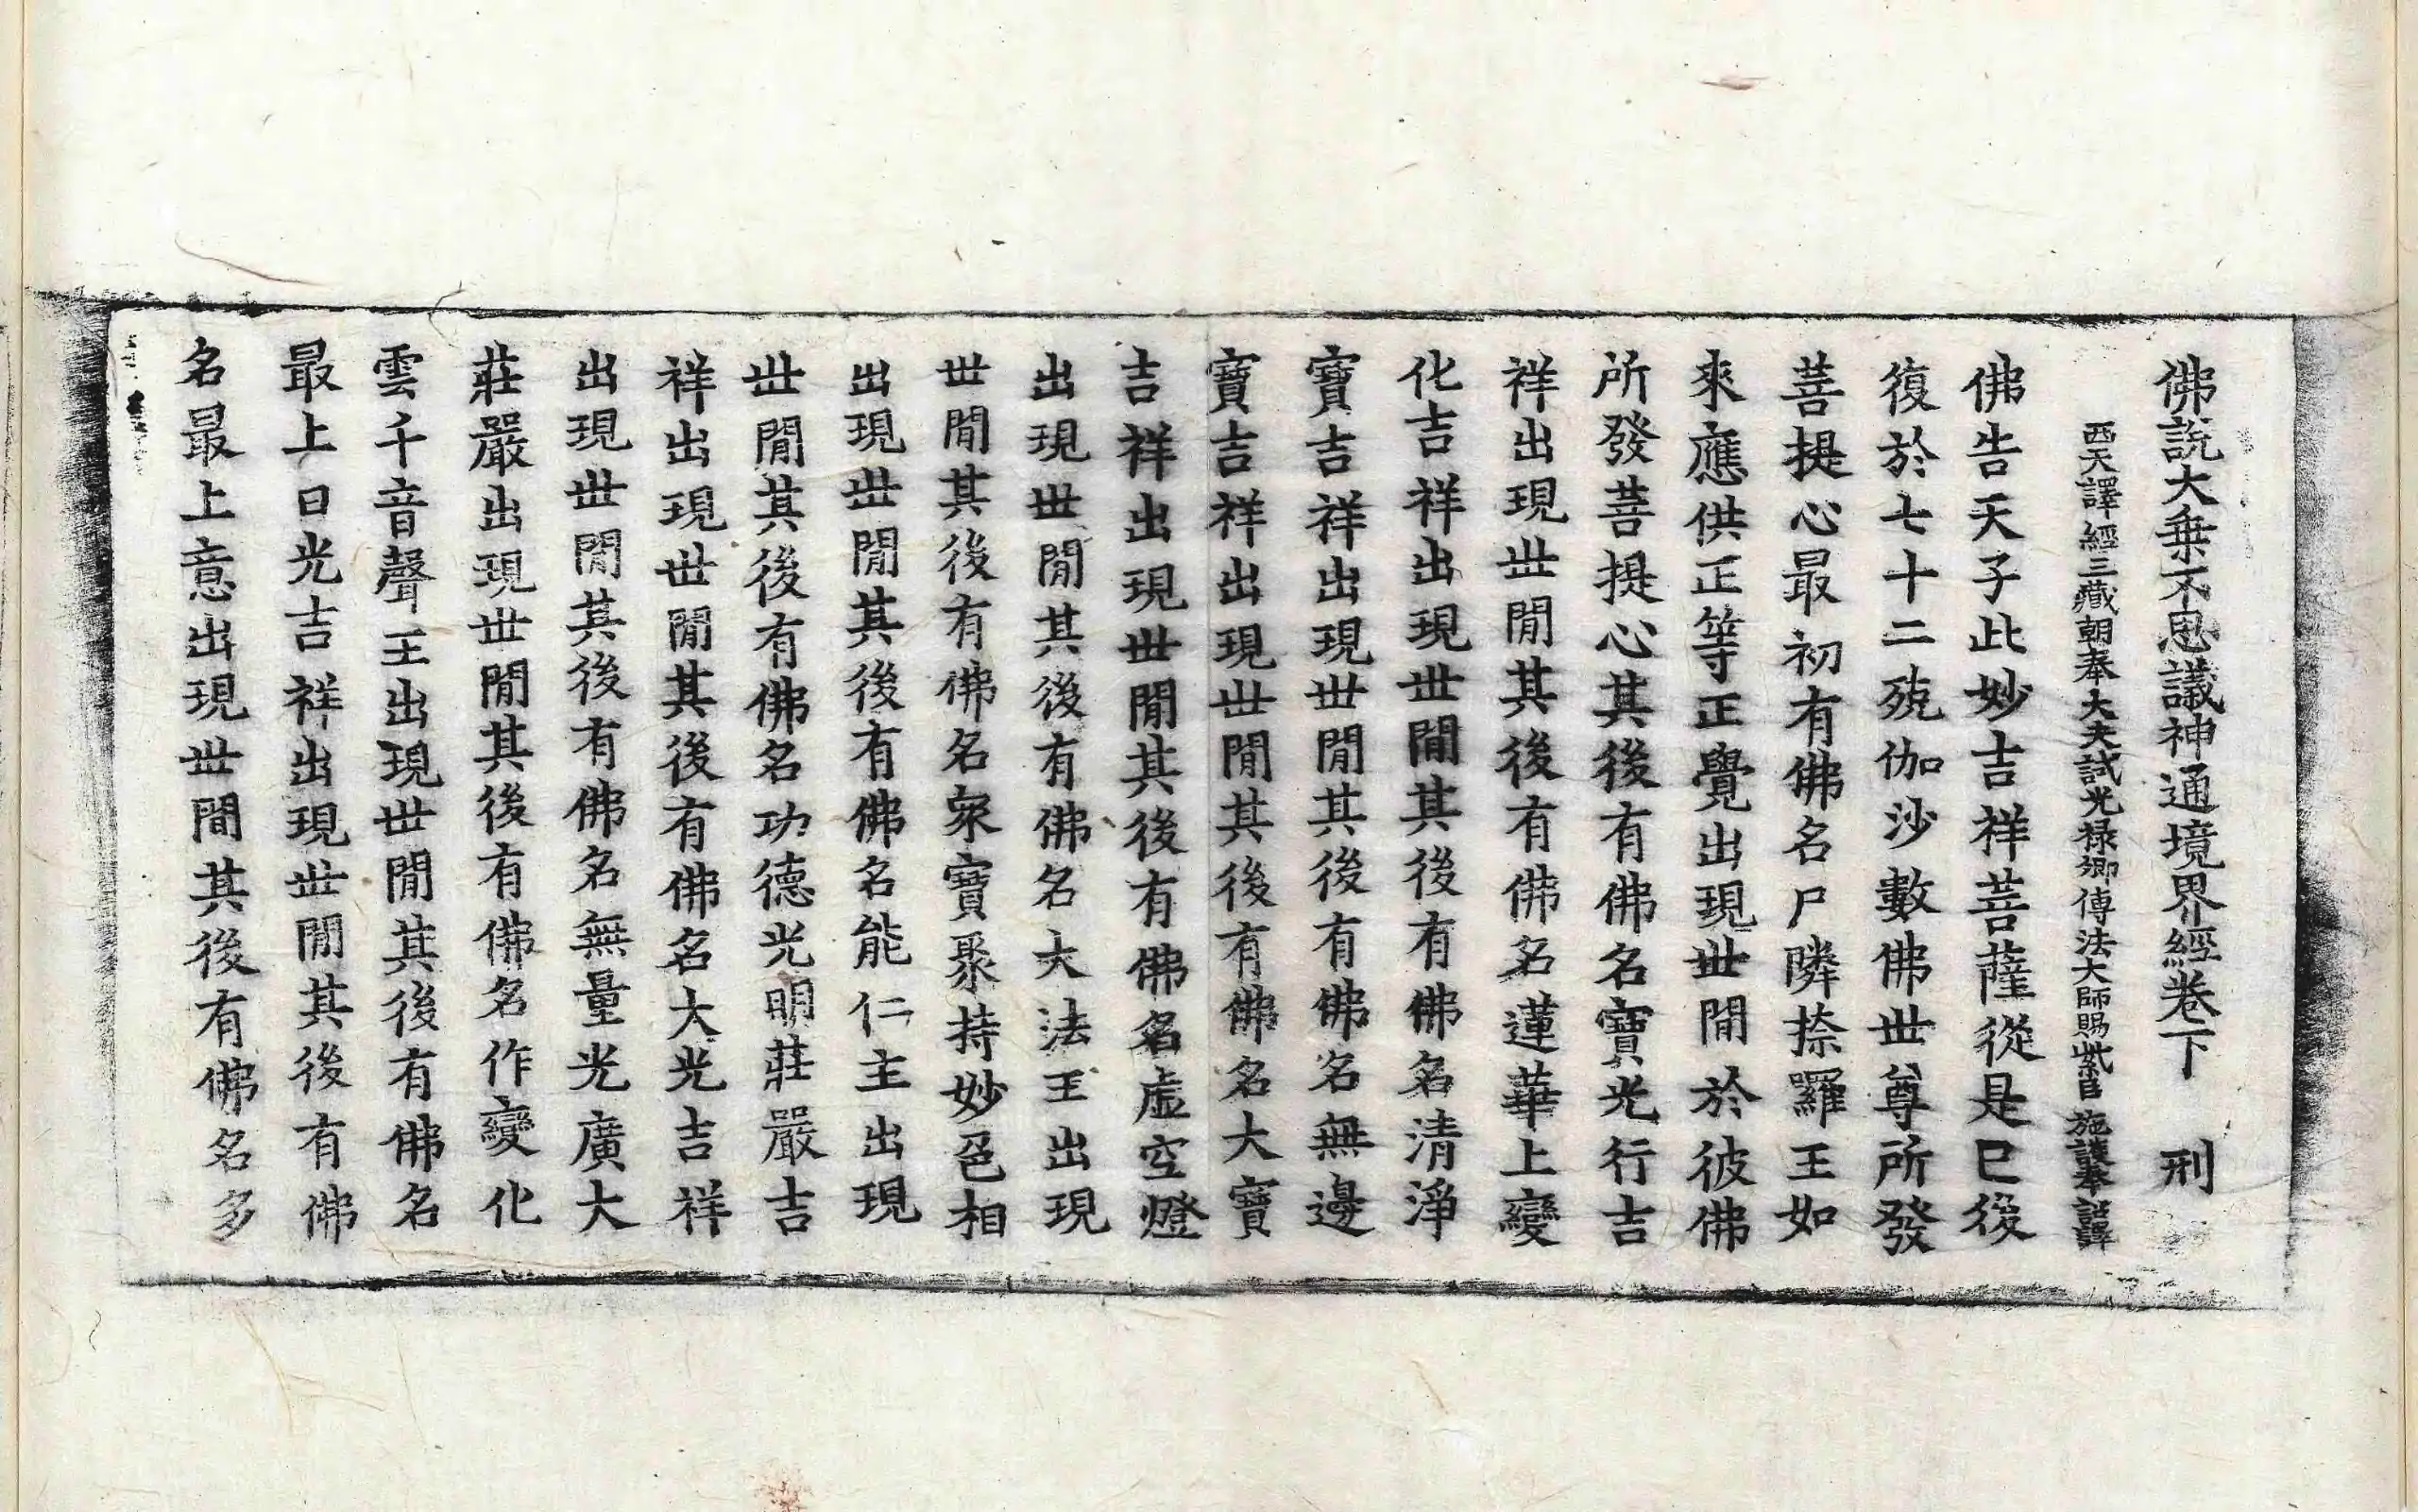 佛說大乗不思議神通境界經卷下　刑
西天譯經三藏朝奉大夫試光祿卿傳法大師賜紫臣施護奉詔譯
佛告天子此妙吉祥菩薩從是已後
復於七十二殑伽沙數佛世尊所發
菩提心最初有佛名尸隣捺羅王如
來應供正等正覺出現世閒於彼佛
所發菩提心其後有佛名寶光行吉
祥出現世閒其後有佛名蓮華上變
化吉祥出現世閒其後有佛名清淨
寶吉祥出現世閒其後有佛名無邊
寶吉祥出現世閒其後有佛名大寶
吉祥出現世閒其後有佛名虛空燈
出現世閒其後有佛名大法王出現
世閒其後有佛名衆寶聚持妙色相
出現世閒其後有佛名能仁主出現
世閒其後有佛名功德光明莊嚴吉
祥出現世閒其後有佛名大光吉祥
出現世閒其後有佛名無量光廣大
莊嚴出現世閒其後有佛名作變化
雲千音聲王出現世閒其後有佛名
最上日光吉祥出現世閒其後有佛
名最上意出現世閒其後有佛名多